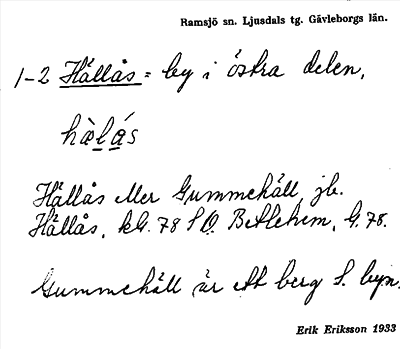 Ramsjö sn. Ljusdals tg. Gävleborgs län.
1-2 Hällås = by i östra delen,
hὰlás
Hällås eller Gummehäll, jb.
Hällås, kG. 78 S Ö. Betlehem, G. 78.
Gummehäll är ett berg S. byn.
Erik Eriksson 1933